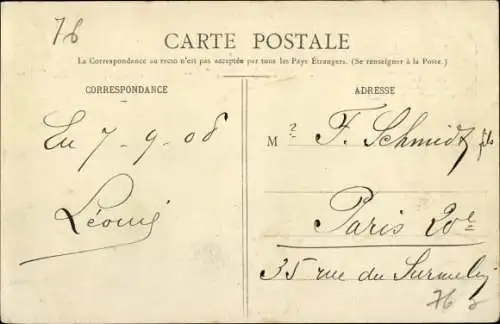 76
CARTE POSTALE
La Correspondance au recto n'est pas acceptée par tous les Pays Étrangers. (Se renseigner à la Poste.)
CORRESPONDANCE
ADRESSE
En 7-9-08
Léonie
M? F. Schmidt fils
Paris 20e
35 rue du Surmelin
76